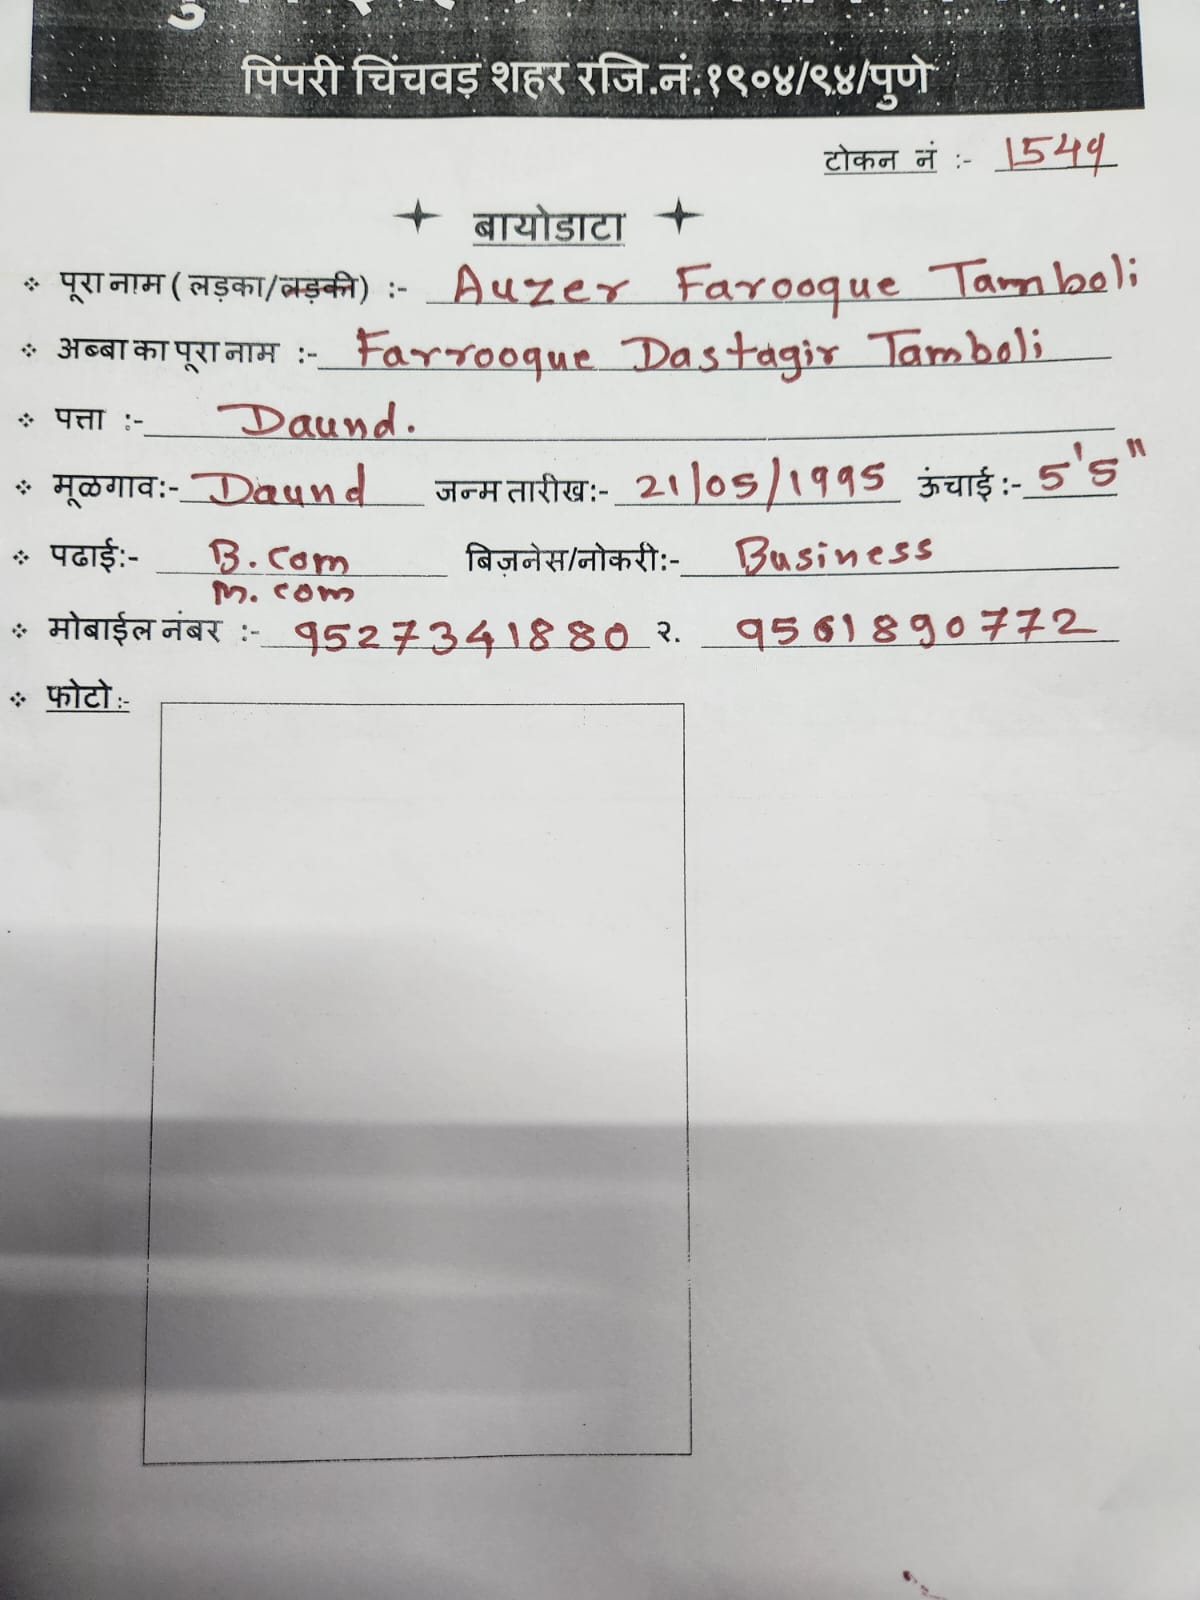 पिंपरी चिंचवड़ शहर रजि.नं.१९०४/९४/पुणे
टोकन नं :- 1549
बायोडाटा
पूरा नाम ( लड़का/लड़की) :- Auzer Farooque Tamboli
अब्बा का पूरा नाम :- Farrooque Dastagir Tamboli
पत्ता :- Daund.
मूळगाव:- Daund जन्म तारीख:- 21/05/1995 ऊंचाई:- 5'5"
पढाई:- B.com बिज़नेस/नोकरी:- Business
M.com
मोबाईल नंबर :- 9527341880 २. 9561890772
फोटो:-